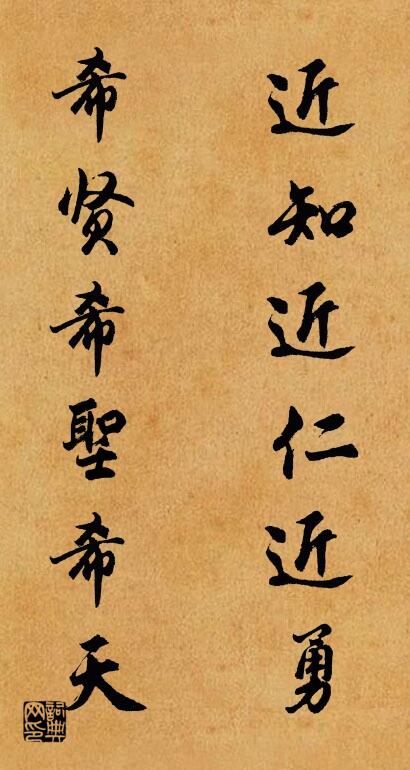 近知近仁近勇
希贤希聖希天